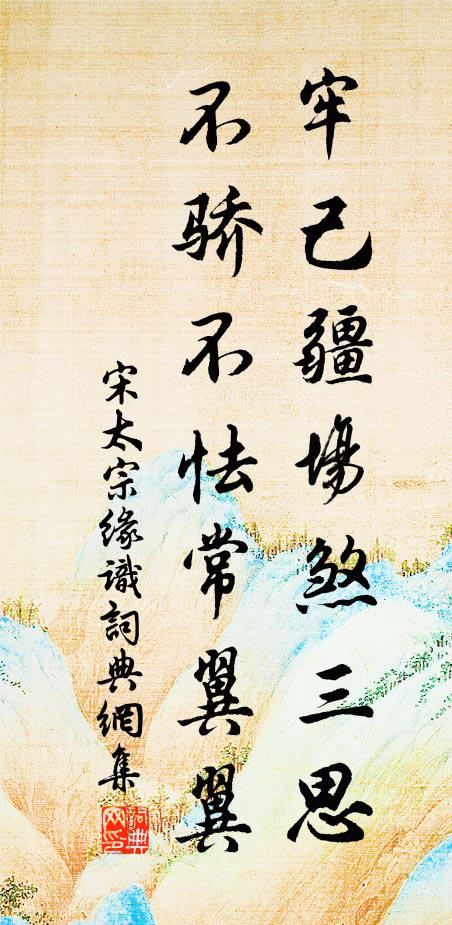 牢己疆場煞三思
不骄不怯常翼翼
宋太宗緣識詞典網集
詞典網印